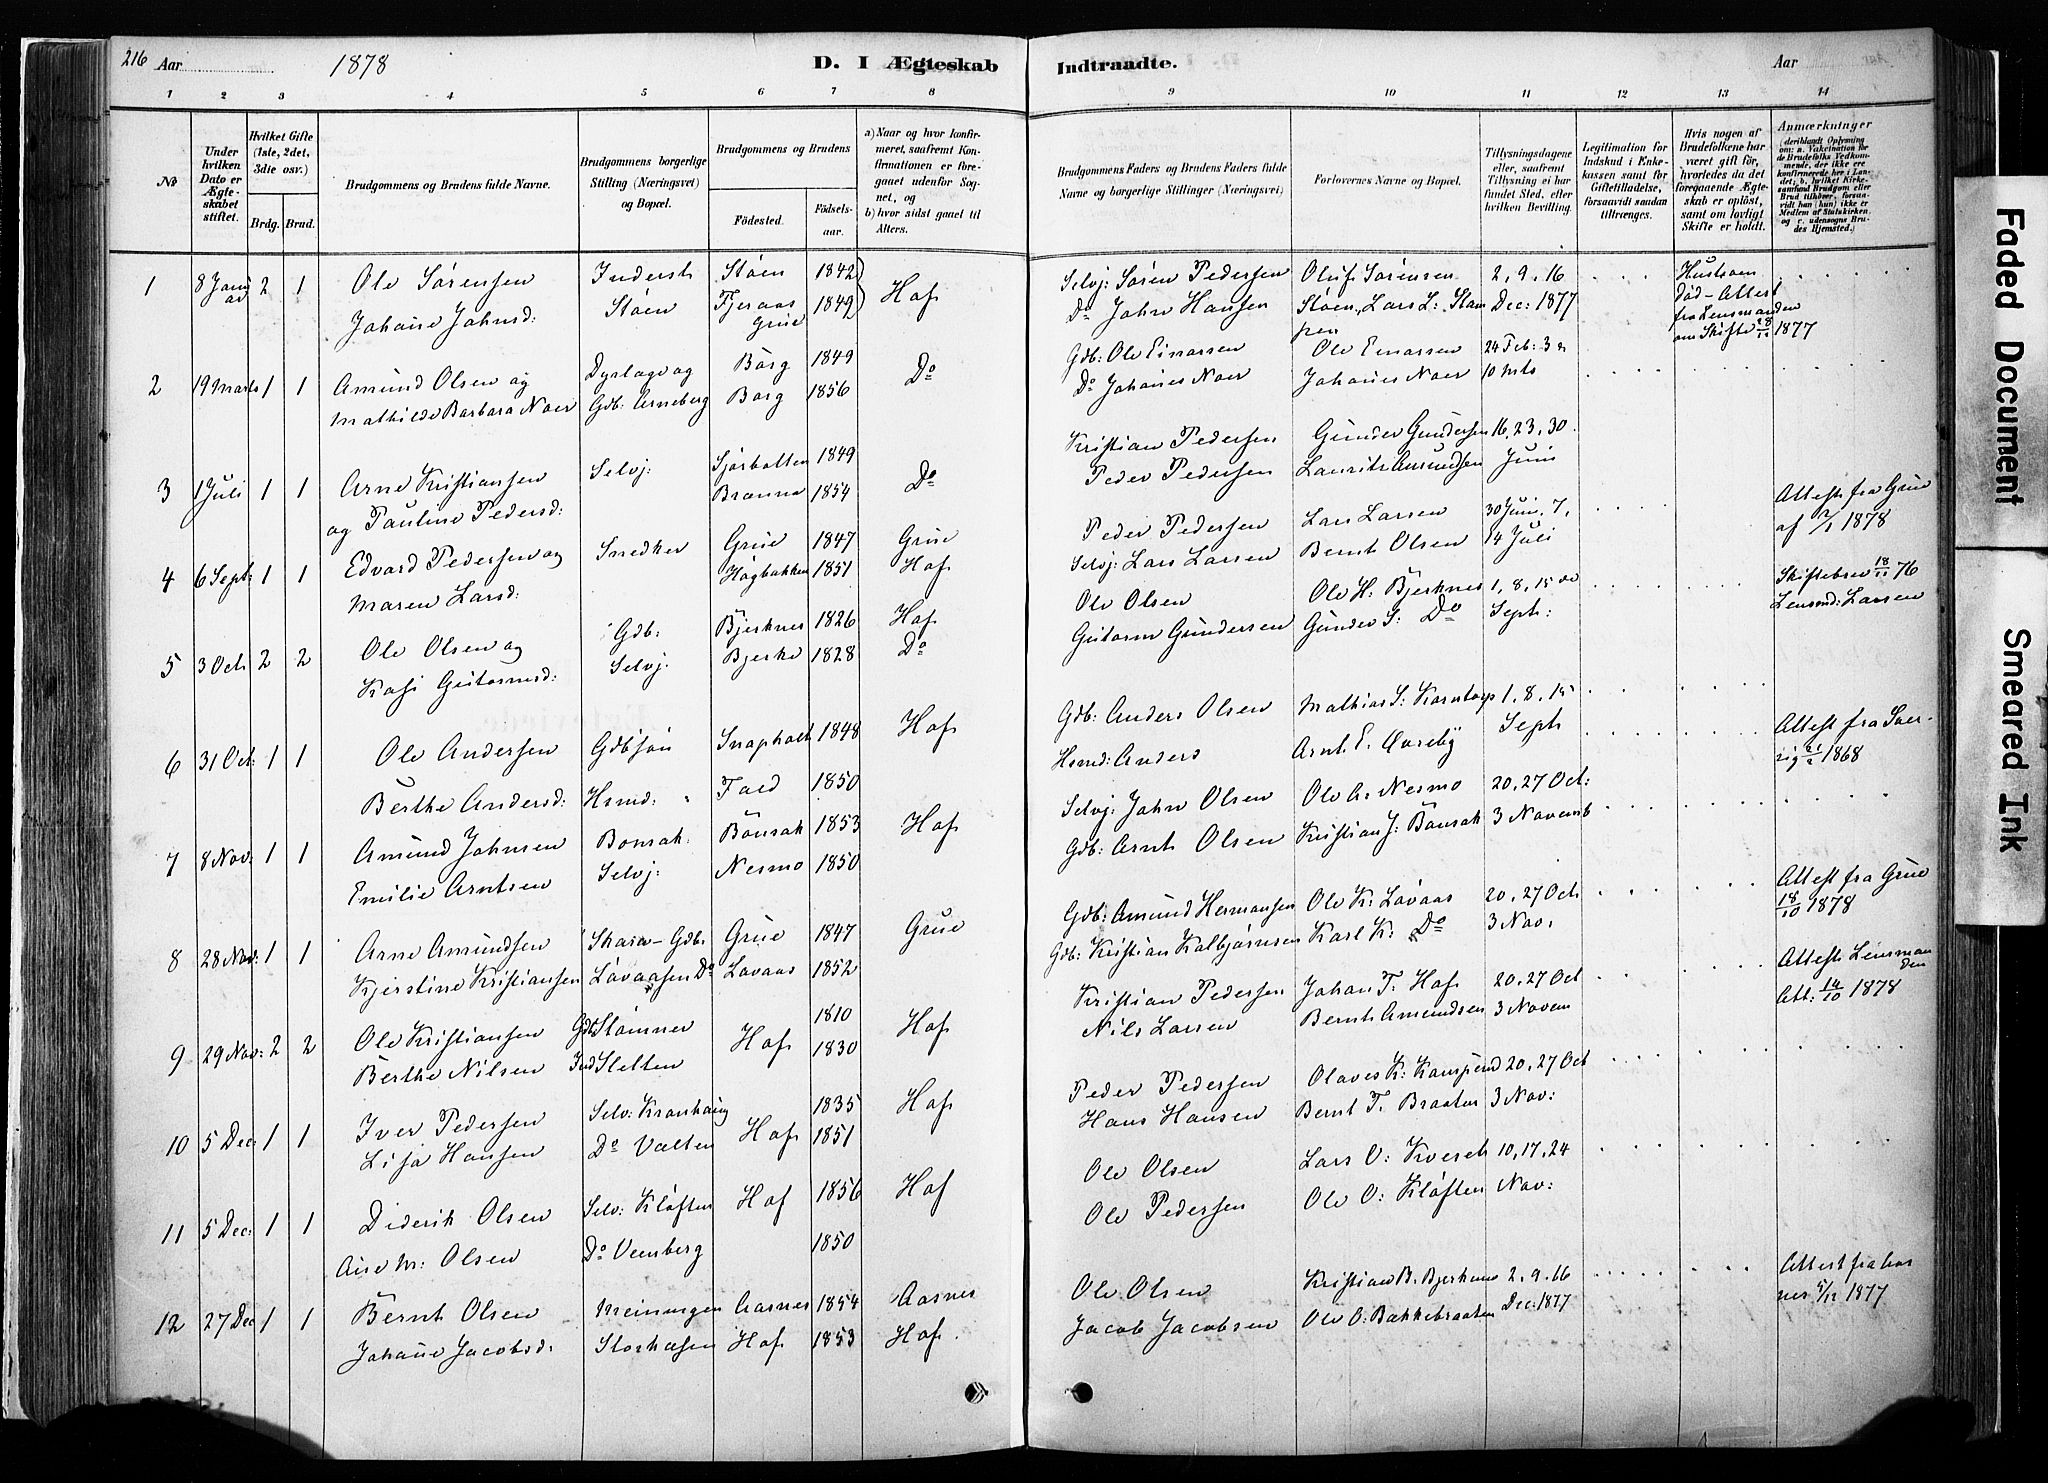 216 Aar 1878 D. I Ægteskab Indtraadte. Aar
1 2 3 4 5 6 7 8 9 10 11 12 13 14
№
Under hvilken Dato er Ægteskabet stiftet.
Hvilket Gifte (1ste, 2det, 3die osv.)
Brdg. Brud.
Brudgommens og Brudens fulde Navne.
Brudgommens borgerlige Stilling (Næringsvei) og Bopæl.
Brudgommens og Brudens
Födested. Födsels-aar.
a) Naar og hvor konfirmeret, saafremt Konfirmationen er foregaaet udenfor Sognet, og
b) hvor sidst gaaet til Alters.
Brudgommens Faders og Brudens Faders fulde Navne og borgerlige Stillinger (Næringsvei)
Forlovernes Navne og Bopæl.
Tillysningsdagene eller, saafremt Tillysning ei har fundet Sted, efter hvilken Bevilling.
Legitimation for Indskud i Enkekassen samt for Giftetilladelse, forsaavidt saadan tiltrænges.
Hvis nogen af Brudefolkene har været gift för, hvorledes da det foregaaende Ægteskab er oplöst, samt om lovligt Skifte er holdt.
Anmærkninger
(deriblandt Oplysning om: a. Vakcination for de Brudefolks Vedkommende, der ikke ere konfirmerede her i Landet; b. hvilket Kirkesamfund Brudgom eller Brud tilhörer, forsaavidt han (hun) ikke er Medlem af Statskirken, og c. udensogns Brudes Hjemsted.)
1 8 Januar 2 1 Ole Sørensen Inderst Støen 1842 Hof Selvj: Søren Pedersen Oluf Sørensen 2, 9, 16 Hustruen
Johane Johnsd: Støen Fjeraas Grue 1849 Do John Hansen Støen, Lars L: Stampen Dec: 1877 død – Attest
fra Lensmanden
om Skifte 1877
2 19 Marts 1 1 Amund Olsen og Dyrlæge og Borg 1849 Do Gdb: Ole Einarsen Ole Einarsen 24 Feb: 3 &
Mathilde Barbara Noer Gdb: Arneberg Borg 1856 Do Johanes Noer Johanes Noer 10 Mts
3 1 Juli 1 1 Arne Kristiansen Selvj: Sjørbotten 1849 Do Kristian Pedersen Gunder Gundersen 16, 23, 30
og Pauline Pedersd: Brænna 1854 Peder Pedersen Laurits Amundsen Juni
4 6 Sept: 1 1 Edvard Pedersen og Snedker Grue 1847 Grue Peder Pedersen Lars Larsen 30 Juni, 7, Attest fra Grue
Maren Larsd: Høgbakken 1851 Hof Selvj: Lars Larsen Bernt Olsen 14 Juli af 2/7 1878
5 3 Oct 2 2 Ole Olsen og Gdb: Bjerknes 1826 Hof Ole Olsen Ole H: Bjerknes 1, 8, 15 Skiftebrev 18/11 76
Kasi Gutormsd: Selvj. Bjerke 1828 Do Gutorm Gundersen Gunder S: Do Sept: Lensmd: Larsen
6 31 Oct: 1 1 Ole Andersen Gdbsøn Snapholt 1848 Hof Gdb: Anders Olsen Mathias S: Korntorp 1, 8, 15 Attest fra Sverrig
Berthe Andersd: Hsmd: Foed 1850 Hsmd: Anders Arnt E. Sept 1868
7 8 Nov: 1 1 Amund Johnsen Bonsak: Bönsak 1853 Hof Selvj: John Olsen Ole A: Nesmo 20, 27 Oct:
Emilie Arntsen Selvj: Nesmo 1850 Gdb: Arnt Olsen Kristian J: Bönsak 3 Novemb
8 28 Nov: 1 1 Arne Amundsen Skasen – Gdb: Grue 1847 Grue Gdb: Amund Hermansen Ole K: Løvaas 20, 27 Oct: Attest fra Grue
Kjerstine Kristiansen Løvaasen Do Løvaas 1852 Gdb: Kristian Kolbjørnsen Karl K: Do 3 Nov. 18/10 1878
9 29 Nov: 2 2 Ole Kristiansen Gdb: Stømner Hof 1810 Hof Kristian Pedersen Johan T. Hof 20, 27 Oct Attest Lensmanden
Berthe Nilsen Ind Sletten 1830 Nils Larsen Bernt Amundsen 3 Novem Att: 14/10 1878
10 5 Dec 1 1 Iver Pedersen Selv: Kranhaug Hof 1835 Hof Peder Pedersen Olaves K: 20, 27 Oct
Lisa Hansen Do Valten 1851 Hans Hansen Bernt T. Braaten 3 Nov:
11 5 Dec: 1 1 Diderik Olsen Selv: Kløften Hof 1856 Hof Ole Olsen Lars O: Kverek 10, 17, 24
Aise M: Olsen Do Vensberg 1850 Ole Pedersen Ole O: Kløften Nov:
12 27 Dec 1 1 Bernt Olsen Meinengen Aasnes 1854 Aasnes Ole Olsen Kristian B. Bjerkum 2, 9, 16 Attest fra Aas
Johane Jacobsd: Storhaasen Hof 1853 Hof. Jacob Jacobsen Ole O: Bakkebraaten Dec: 1877 nes 5/12 1877
Faded Document
Smeared Ink